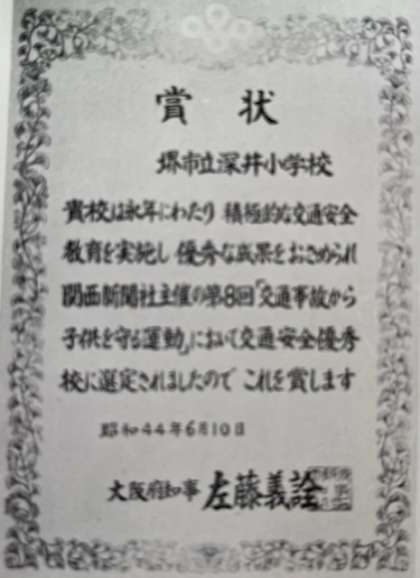 賞 状
堺市立深井小学校
貴校は永年にわたり 積極的な交通安全
教育を実施し 優秀な成果をおさめられ
関西新聞社主催の第8回「交通事故から
子供を守る運動」において交通安全優秀
校に選定されましたので これを賞します
昭和44年6月10日
大阪府知事 左藤義詮